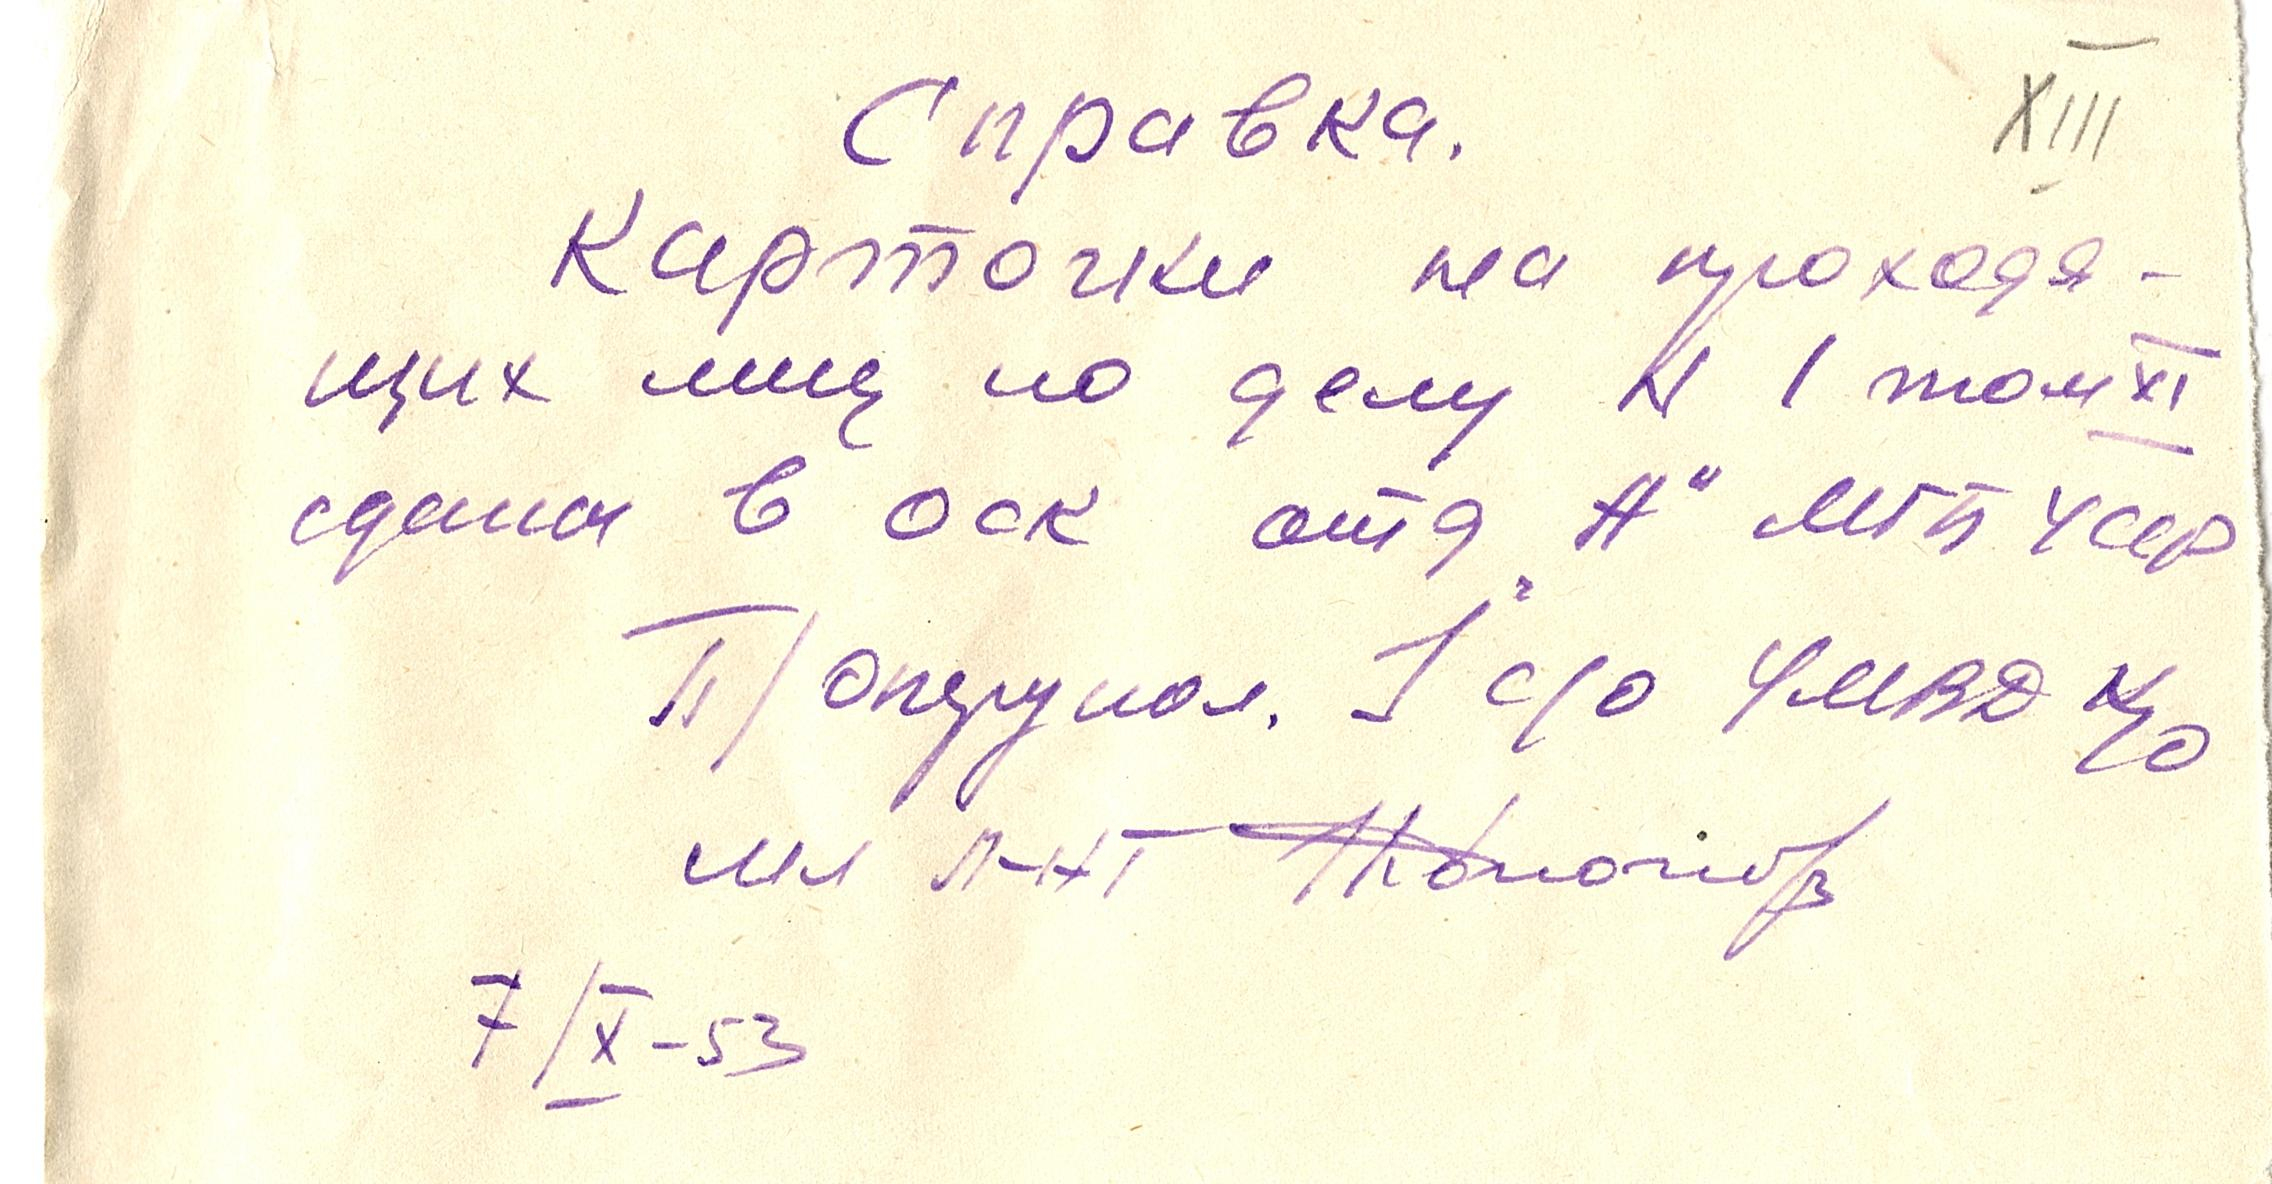 XIII
Справка.
Карточки на проходя-
щих лиц по делу N 1 том XI
сданы в оск отд "А" МГБ УССР
П/Оперуполн. I с/о УМВД
мл л-нт
7/X-53